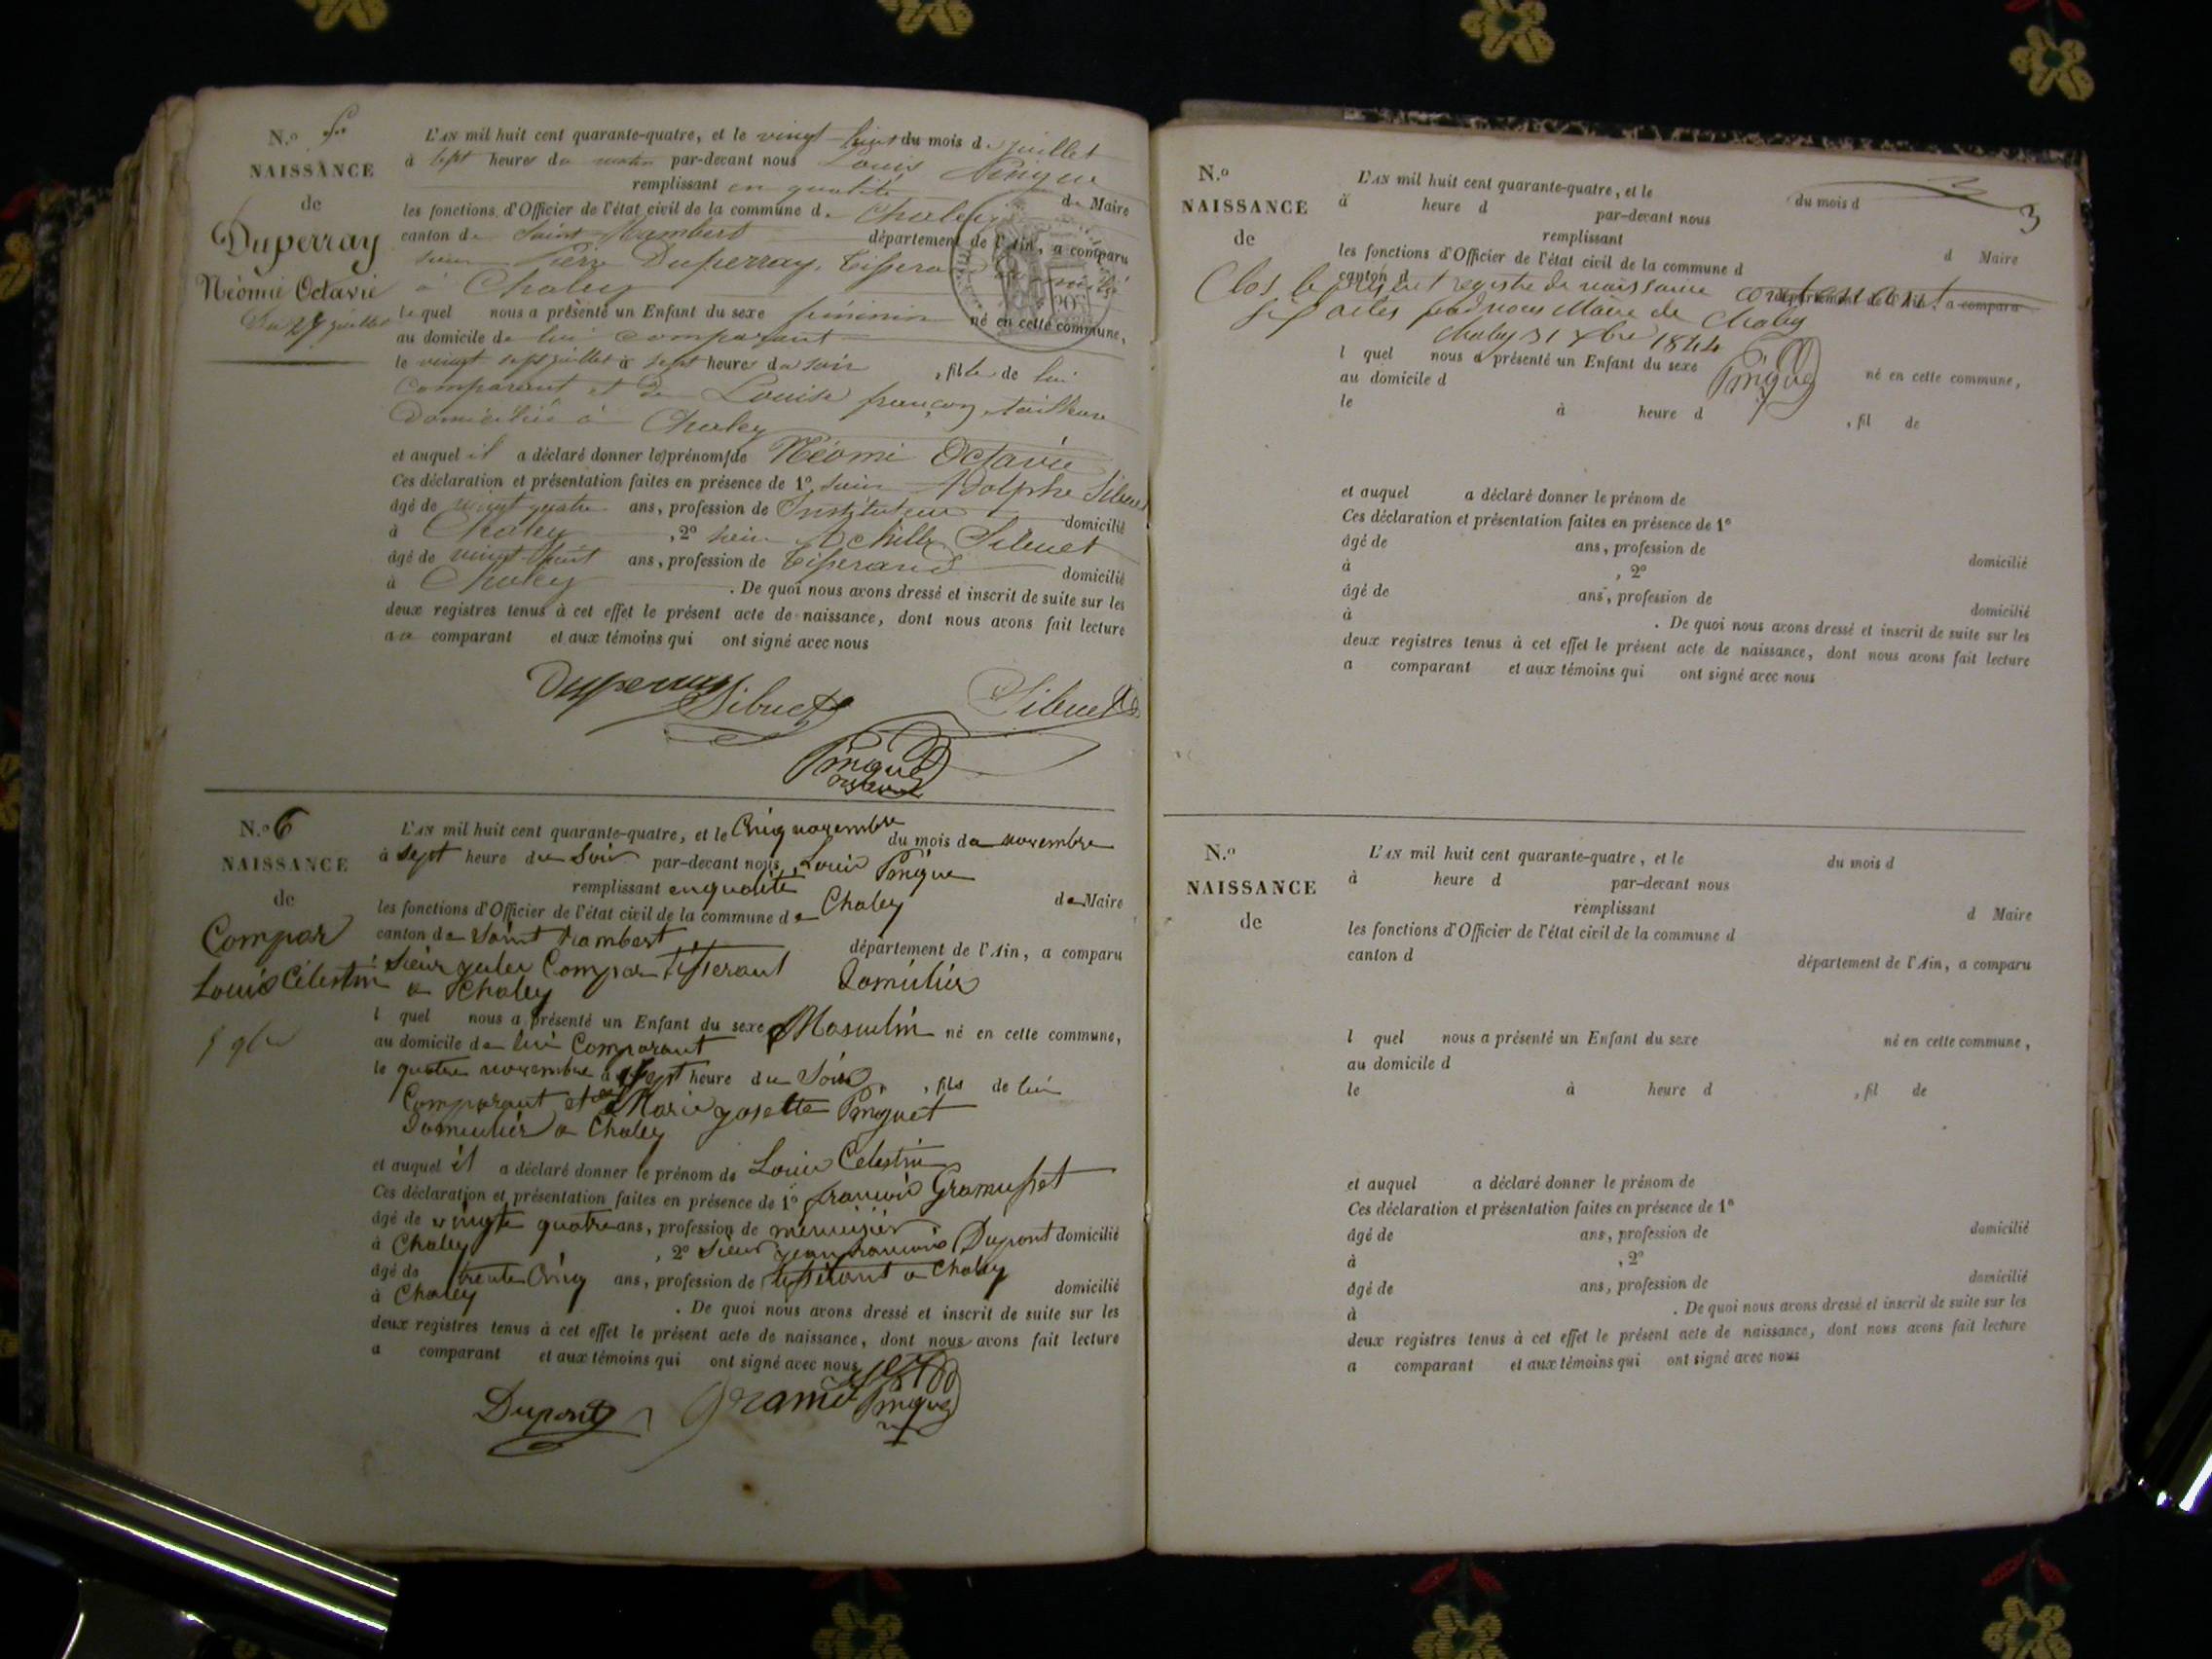 N.o 5
NAISSANCE
de
Duperray
Néomie Octavie
Du 27 juillet
L'AN mil huit cent quarante-quatre, et le vingt huit du mois de juillet
à sept heures du matin par-devant nous Louis Pingue
remplissant en qualité de Maire
les fonctions d'Officier de l'état civil de la commune de Chaley
canton de Saint Rambert département de l'Ain, a comparu
sieur Pierre Duperray, tisserand
à Chaley
lequel nous a présenté un Enfant du sexe féminin né en cette commune,
au domicile de lui comparant
le vingt sept juillet à sept heures du soir , fille de lui
comparant et de Louise françon, tailleuse
Domiciliés à Chaley
et auquel il a déclaré donner les prénoms de Néomi Octavie
Ces déclaration et présentation faites en présence de 1º sieur Adolphe Sibuet
âgé de vingt quatre ans, profession de Instituteur domicilié
à Chaley , 2º sieur Achille Sibuet
âgé de vingt huit ans, profession de tisserand domicilié
à Chaley . De quoi nous avons dressé et inscrit de suite sur les
deux registres tenus à cet effet le présent acte de naissance, dont nous avons fait lecture
au comparant et aux témoins qui ont signé avec nous
Duperray Sibuet Sibuet
Pingue
N.o 6
NAISSANCE
de
Compar
Louis Célestin
5 9bre
L'AN mil huit cent quarante-quatre, et le Cinq novembre du mois de novembre
à sept heure du soir par-devant nous Louis Pingue
remplissant en qualité de Maire
les fonctions d'Officier de l'état civil de la commune de Chaley
canton de Saint rambert département de l'Ain, a comparu
Sieur Compar tisserant Domicilié
a Chaley
l quel nous a présenté un Enfant du sexe Masculin né en cette commune,
au domicile de lui Comparant
le quatre novembre a sept heure du Soir , fils de lui
Comparant et de Marie gosette Pinguet
Domicilié a Chaley
et auquel il a déclaré donner le prénom de Louis Celestin
Ces déclaration et présentation faites en présence de 1º francois Gramusset
âgé de vingte quatre ans, profession de menuisier domicilié
à Chaley , 2º Sieur jean francois Dupont
âgé de trente Cinq ans, profession de tisserant a Chaley domicilié
à Chaley . De quoi nous avons dressé et inscrit de suite sur les
deux registres tenus à cet effet le présent acte de naissance, dont nous avons fait lecture
a comparant et aux témoins qui ont signé avec nous
Dupont Gramusset Pingue
3
N.o
NAISSANCE
de
L'AN mil huit cent quarante-quatre, et le du mois d
à heure d par-devant nous
remplissant d Maire
les fonctions d'Officier de l'état civil de la commune d
canton d département de l'Ain, a comparu
Clos le présent registre de naissance contenant
six actes par nous Maire de Chaley
Chaley 31 Xbre 1844
Pingue
l quel nous a présenté un Enfant du sexe né en cette commune,
au domicile d
le à heure d , fil de
et auquel a déclaré donner le prénom de
Ces déclaration et présentation faites en présence de 1º
âgé de ans, profession de domicilié
à , 2º
âgé de ans, profession de domicilié
à . De quoi nous avons dressé et inscrit de suite sur les
deux registres tenus à cet effet le présent acte de naissance, dont nous avons fait lecture
a comparant et aux témoins qui ont signé avec nous
N.o
NAISSANCE
de
L'AN mil huit cent quarante-quatre, et le du mois d
à heure d par-devant nous
remplissant d Maire
les fonctions d'Officier de l'état civil de la commune d
canton d département de l'Ain, a comparu
l quel nous a présenté un Enfant du sexe né en cette commune,
au domicile d
le à heure d , fil de
et auquel a déclaré donner le prénom de
Ces déclaration et présentation faites en présence de 1º
âgé de ans, profession de domicilié
à , 2º
âgé de ans, profession de domicilié
à . De quoi nous avons dressé et inscrit de suite sur les
deux registres tenus à cet effet le présent acte de naissance, dont nous avons fait lecture
a comparant et aux témoins qui ont signé avec nous